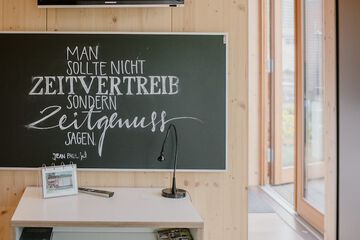 MAN
SOLLTE NICHT
ZEITVERTREIB
SONDERN
Zeitgenuss
SAGEN.
JEAN PAUL